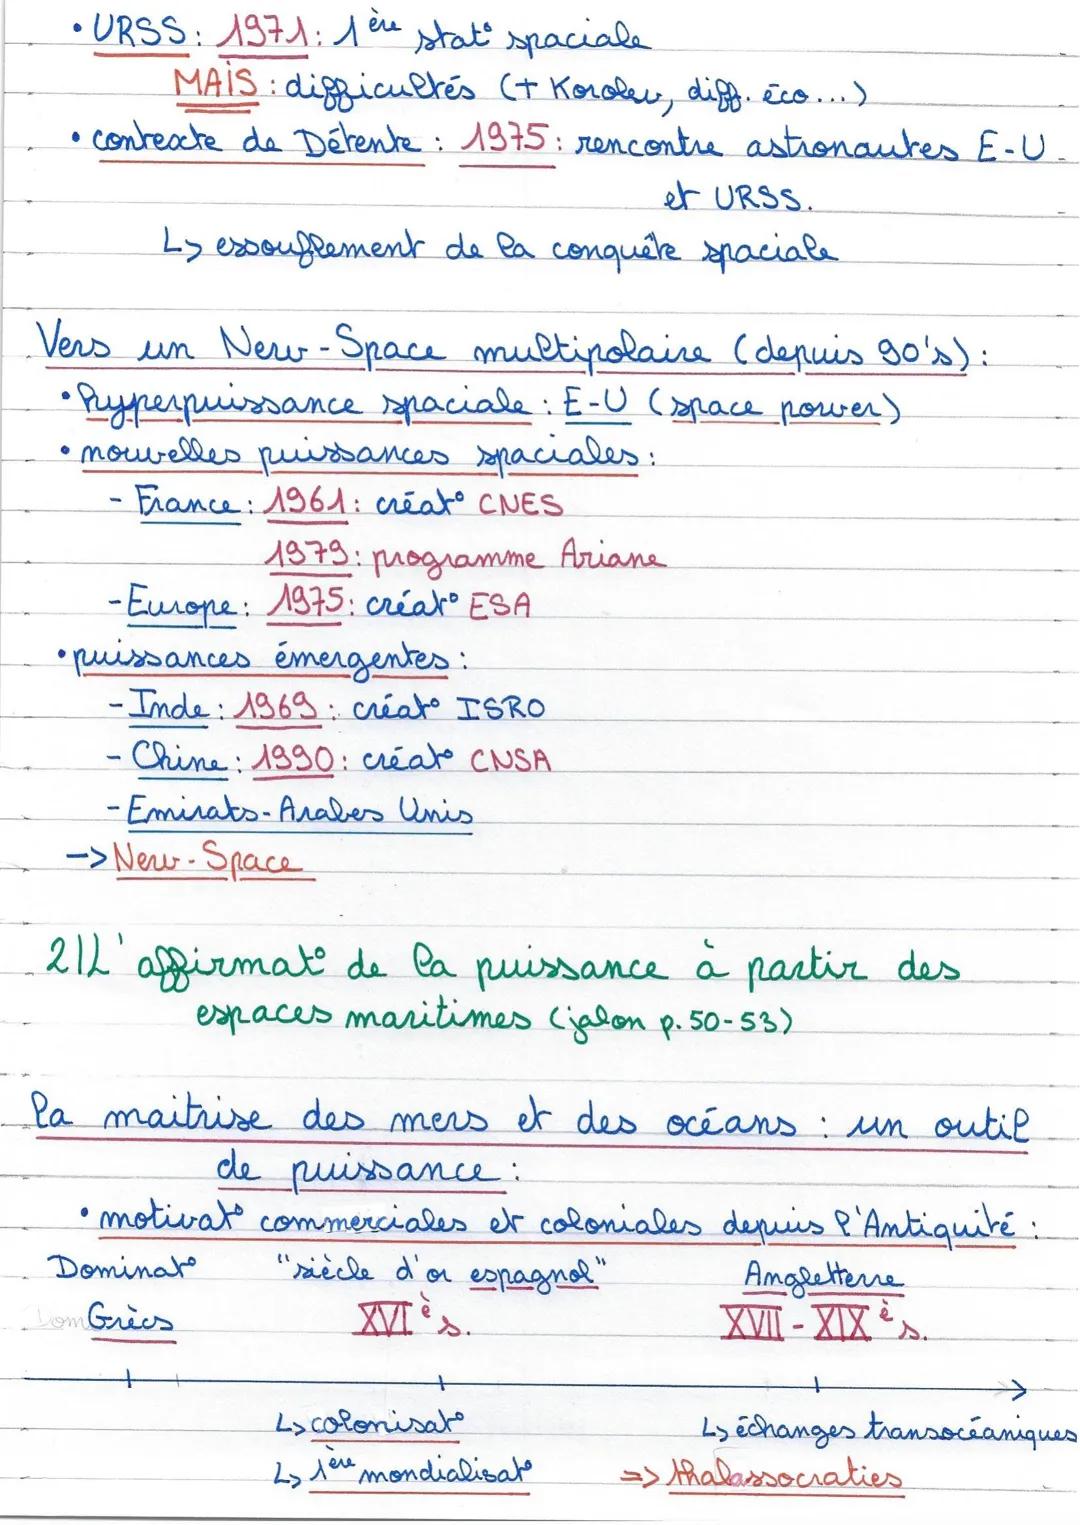 • URSS : 1971 : 1ère stat° spaciale
MAIS : difficultés († Korolev, diff. éco...)
• contexte de Détente : 1975 : rencontre astronautes E-U
et URSS.
↳ essouflement de la conquête spaciale
Vers un New-Space multipolaire (depuis 90's) :
• hyperpuissance spaciale : E-U (space power)
• nouvelles puissances spaciales :
- France : 1961 : créat° CNES
1979 : programme Ariane
- Europe : 1975 : créat° ESA
• puissances émergentes :
- Inde : 1969 : créat° ISRO
- Chine : 1990 : créat° CNSA
- Emirats-Arabes Unis
-> New-Space
2| L'affirmat° de la puissance à partir des
espaces maritimes (jalon p. 50-53)
la maitrise des mers et des océans : un outil
de puissance :
• motivat° commerciales et coloniales depuis l'Antiquité :
Dominat° "siècle d'or espagnol" Angleterre
Grècs XVIè s. XVII - XIXè s.
↳ colonisat° ↳ échanges transocéaniques
↳ 1ère mondialisat° => thalassocraties